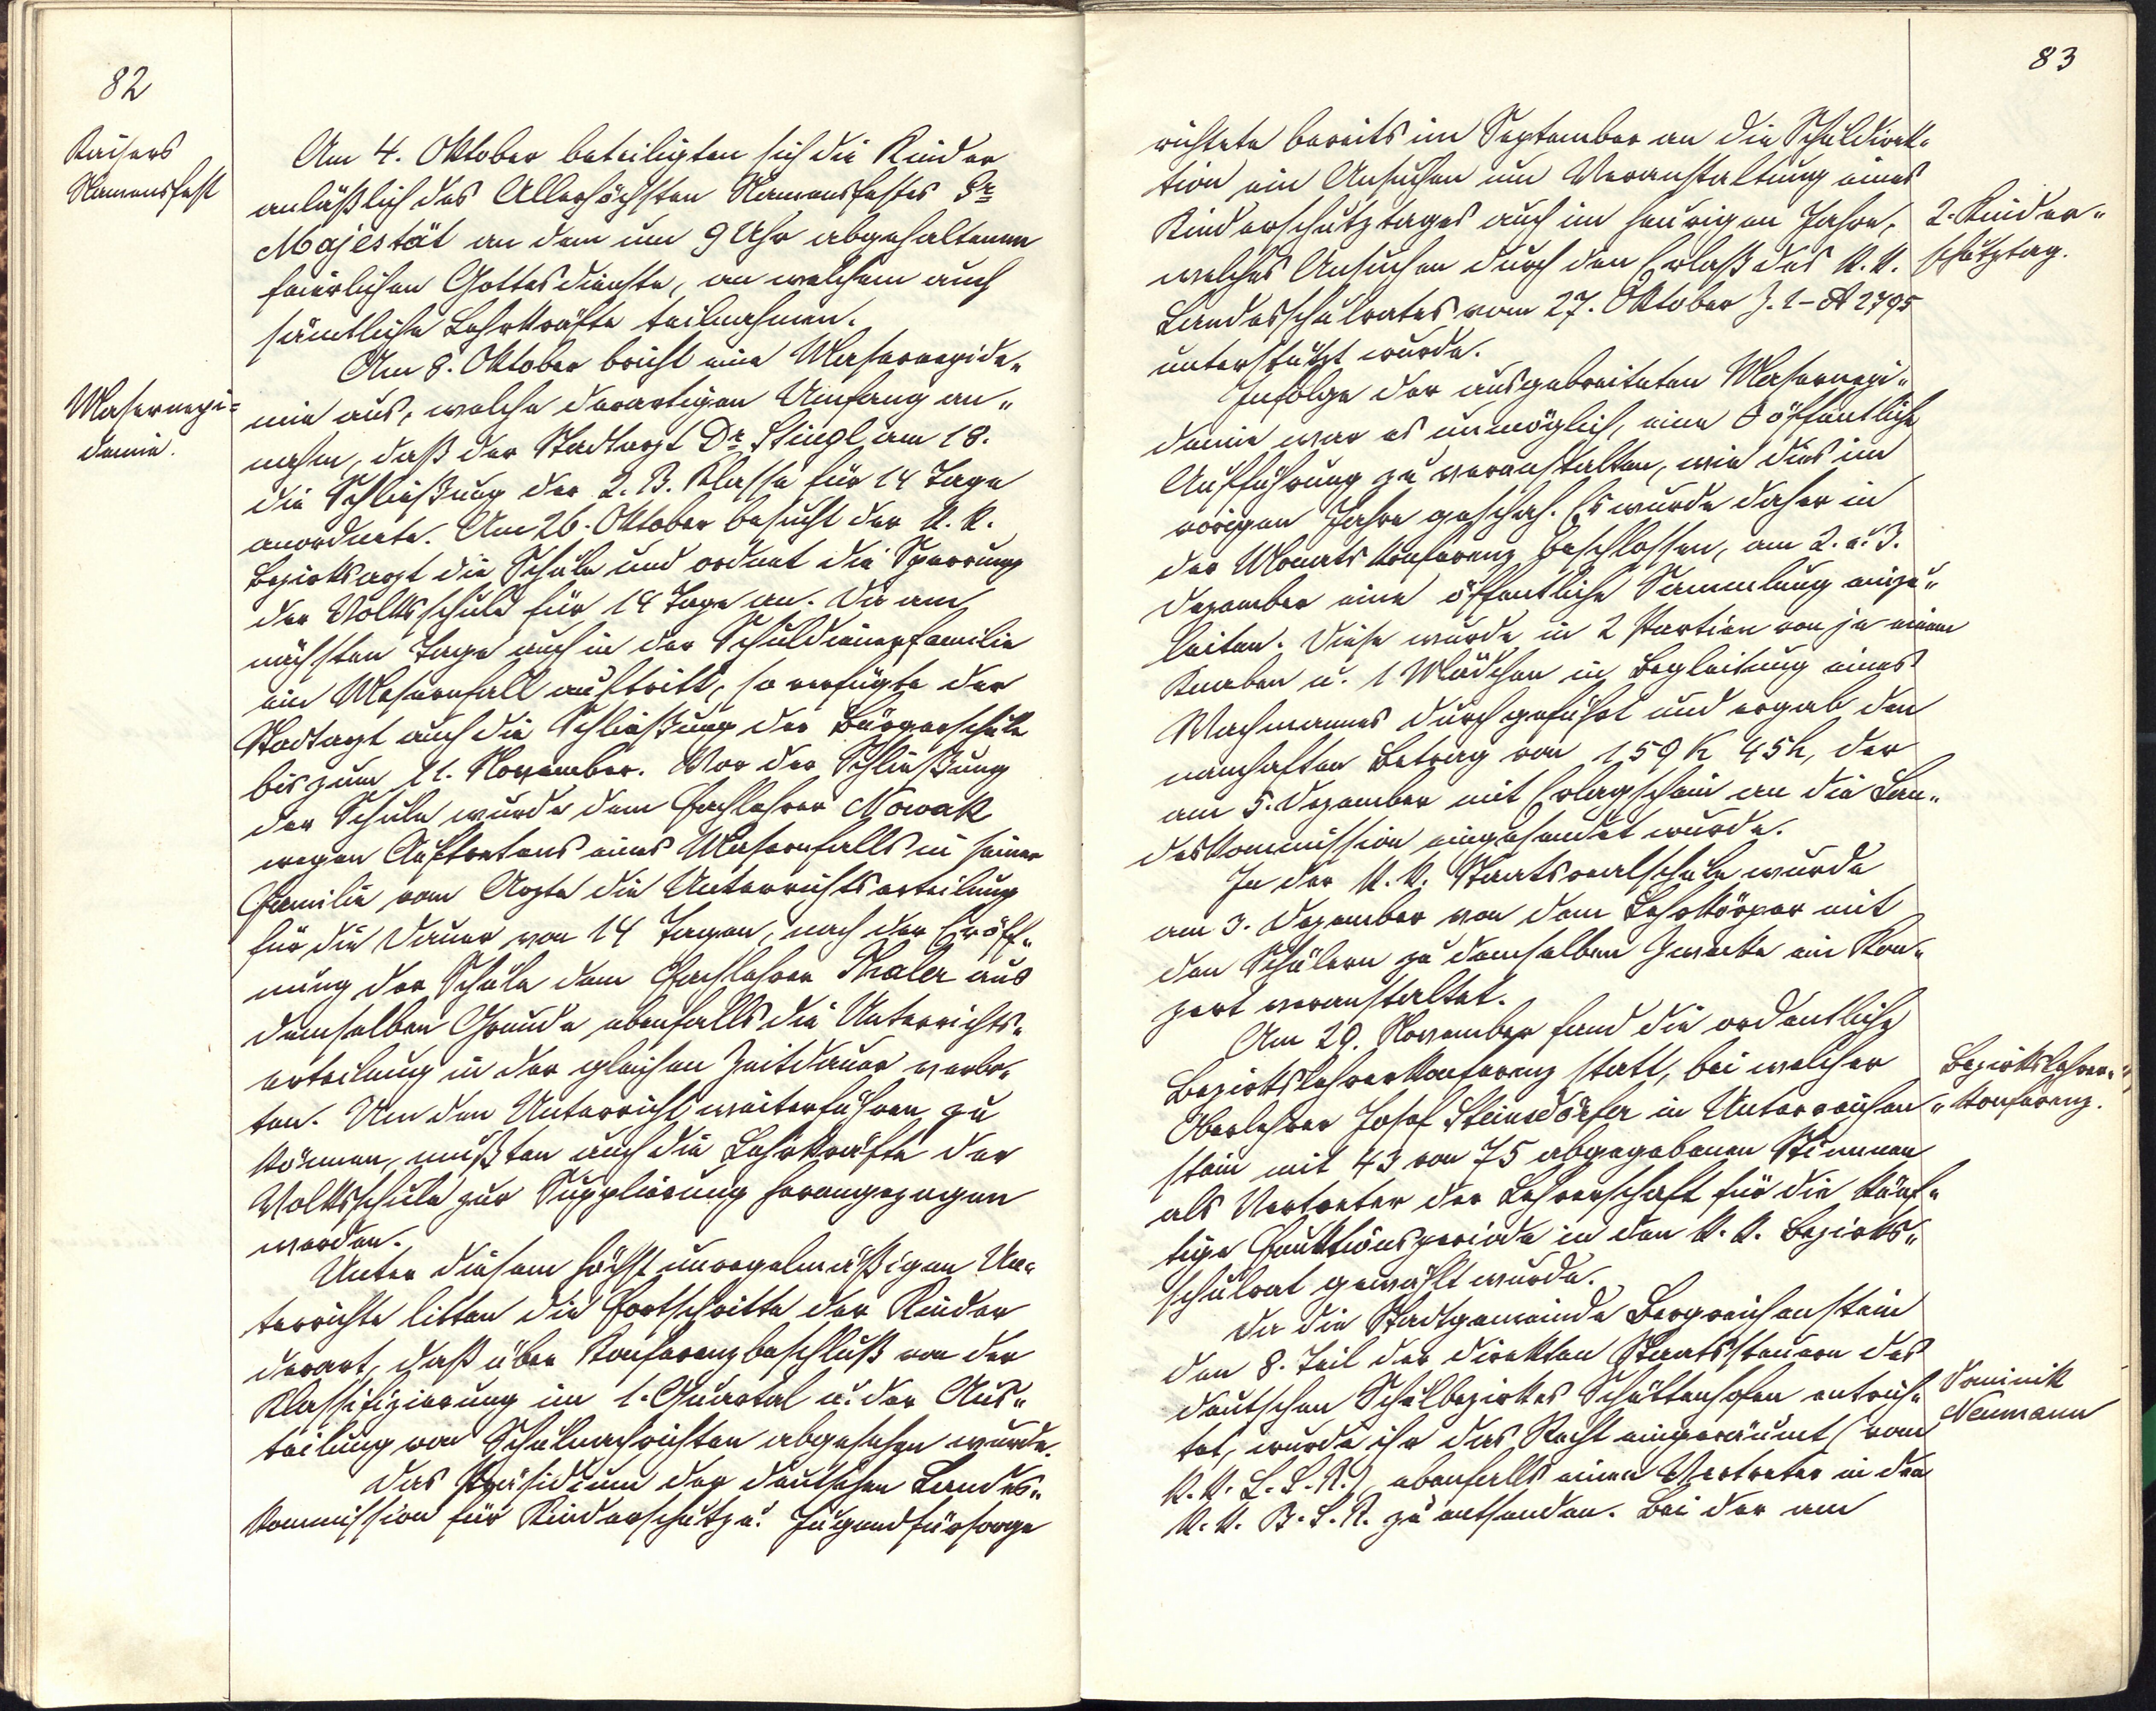 82
Kaisers
Namensfest
Am 4. Oktober beteiligten sich die Kinder
anläßlich des Allerhöchsten Namensfestes Sr
Majestät an dem um 9 Uhr abgehaltenen
feierlichen Gottesdienste, an welchem auch
sämtliche Lehrkräfte teilnahmen.
Masernepi=
demie.
Am 8. Oktober bricht eine Masernepide„
mie aus, welche derartigen Umfang an„
nahm, daß der Stadtarzt Dr. Stingl am 18.
die Schließung der 2. B. Klasse für 14 Tage
anordnete. Am 26. Oktober besucht der k. k.
Bezirksarzt die Schule und ordnet die Sperrung
der Volksschule für 14 Tage an. Da am
nächsten Tage auch in der Schuldienerfamilie
ein Masernfall auftritt, so verfügte der
Stadtarzt auch die Schließung der Bürgerschule
bis zum 11. November. Vor der Schließung
der Schule wurde dem Fachlehrer Nowak
wegen Auftretens eines Masernfalls in seiner
Familie vom Arzte die Unterrichtserteilung
für die Dauer von 14 Tagen, nach der Eröff„
nung der Schule dem Fachlehrer Thaler aus
demselben Grunde ebenfalls die Unterrichts„
erteilung in der gleichen Zeitdauer verbo„
ten. Um den Unterricht weiterführen zu
können, mußten auch die Lehrkräfte der
Volksschule zur Supplierung herangezogen
werden.
Unter diesem höchst unregelmäßigen Un„
terrichte litten die Fortschritte der Kinder
derart, daß über Konferenzbeschluß von der
Klassifizierung im 1. Quartal u. der Aus„
teilung von Schulnachrichten abgesehen wurde.
Das Präsidium der deutschen Landes„
kommission für Kinderschutz u. Jugendfürsorge
83
richtete bereits im September an die Schuldirek„
tion ein Ansuchen um Veranstaltung eines
Kinderschutztages auch im heurigen Jahre,
welches Ansuchen durch den Erlaß des k. k.
Landesschulrates vom 27. Oktober Z. 1-A 2795
unterstützt wurde.
2. Kinder„
schutztag.
Infolge der ausgebreiteten Masernepi„
demie war es unmöglich, eine öffentliche
Aufführung zu veranstalten, wie dies im
vorigen Jahre geschah. Es wurde daher in
der Monatskonferenz beschlossen, am 2. u. 3.
Dezember eine öffentliche Sammlung einzu„
leiten. Diese wurde in 2 Partien von je einem
Knaben u. 1 Mädchen in Begleitung eines
Wachmannes durchgeführt und ergab den
namhaften Betrag von 159 K 45 h, der
am 5. Dezember mit Erlagschein an die Lan„
deskommission eingesendet wurde.
In der k. k. Staatsrealschule wurde
am 3. Dezember von dem Lehrkörper mit
den Schülern zu demselben Zwecke ein Kon„
zert veranstaltet.
Am 29. November fand die ordentliche
Bezirkslehrerkonferenz statt, bei welcher
Oberlehrer Josef Steinsdörfer in Unterreichen„
stein mit 43 von 75 abgegebenen Stimmen
als Vertreter der Lehrerschaft für die künf„
tige Funktionsperiode in den k. k. Bezirks„
schulrat gewählt wurde.
Bezirkslehrer„
„konferenz.
Da die Stadtgemeinde Bergreichenstein
den 8. Teil der direkten Staatssteuern des
deutschen Schulbezirkes Schüttenhofen entrich„
tet, wurde ihr das Recht eingeräumt (vom
k. k. L. S. R.), ebenfalls einen Vertreter in den
k. k. B. S. R. zu entsenden. Bei der am
Dominik
Neumann